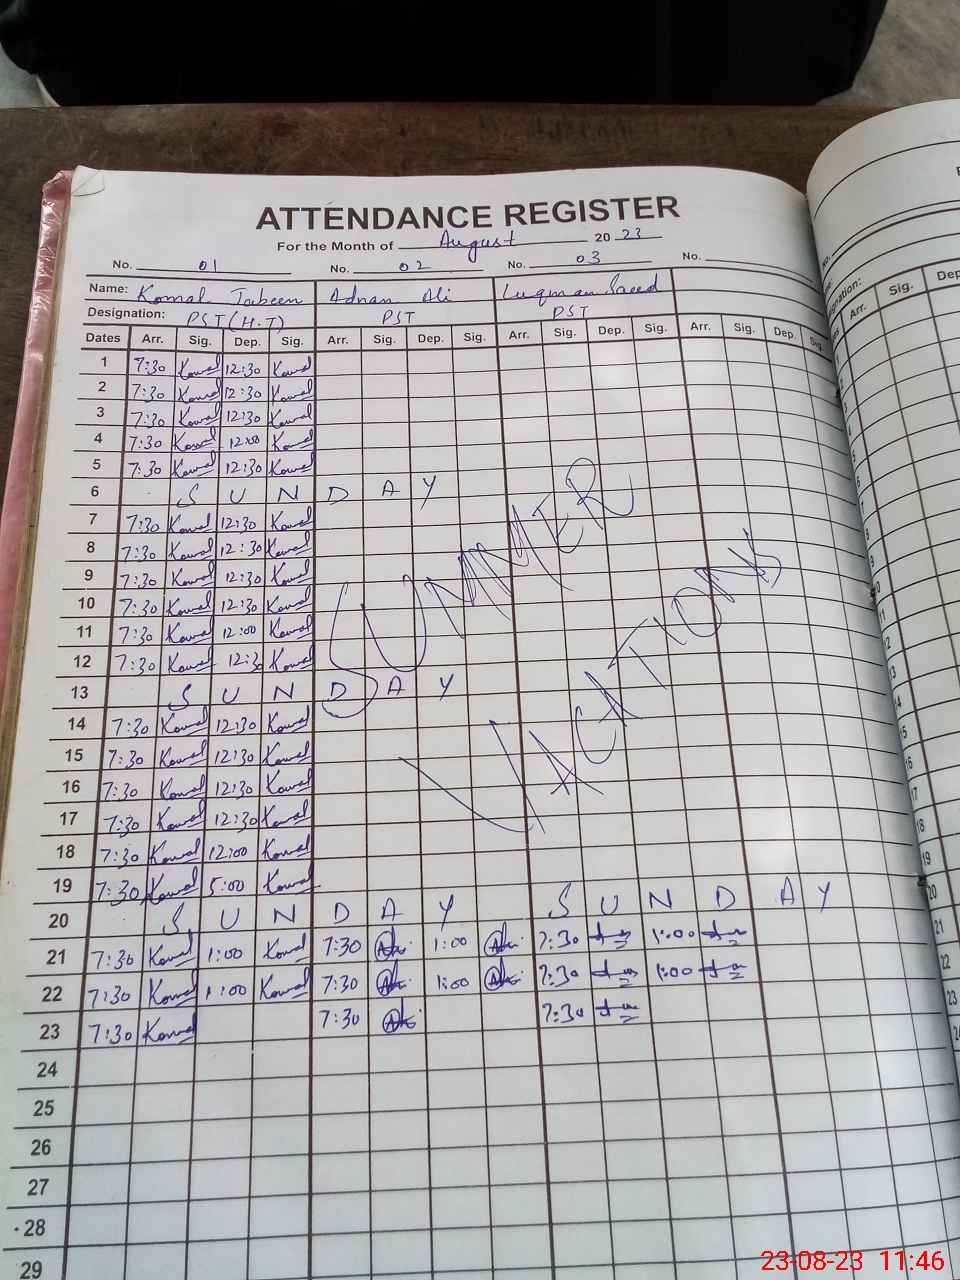 ATTENDANCE REGISTER
For the Month of August 20 23
No. 01 No. 02 No. 03 No.
Name: Komal Jabeen Adnan Ali Luqman Saeed
Designation: PST (H.T) PST PST
Dates Arr. Sig. Dep. Sig. Arr. Sig. Dep. Sig. Arr. Sig. Dep. Sig. Arr. Sig. Dep. Sig.
1 7:30 Komal 12:30 Komal
2 7:30 Komal 12:30 Komal
3 7:30 Komal 12:30 Komal
4 7:30 Komal 12:00 Komal
5 7:30 Komal 12:30 Komal
6 S U N D A Y
7 7:30 Komal 12:30 Komal
8 7:30 Komal 12:30 Komal
9 7:30 Komal 12:30 Komal
10 7:30 Komal 12:30 Komal
11 7:30 Komal 12:00 Komal
12 7:30 Komal 12:30 Komal
13 S U N D A Y
14 7:30 Komal 12:30 Komal
15 7:30 Komal 12:30 Komal
16 7:30 Komal 12:30 Komal
17 7:30 Komal 12:30 Komal
18 7:30 Komal 12:00 Komal
19 7:30 Komal 5:00 Komal
SUMMER
VACATIONS
20 S U N D A Y S U N D A Y
21 7:30 Komal 1:00 Komal 7:30 1:00 7:30 1:00
22 7:30 Komal 1:00 Komal 7:30 1:00 7:30 1:00
23 7:30 Komal 7:30 7:30
24
25
26
27
28
29
23-08-23 11:46